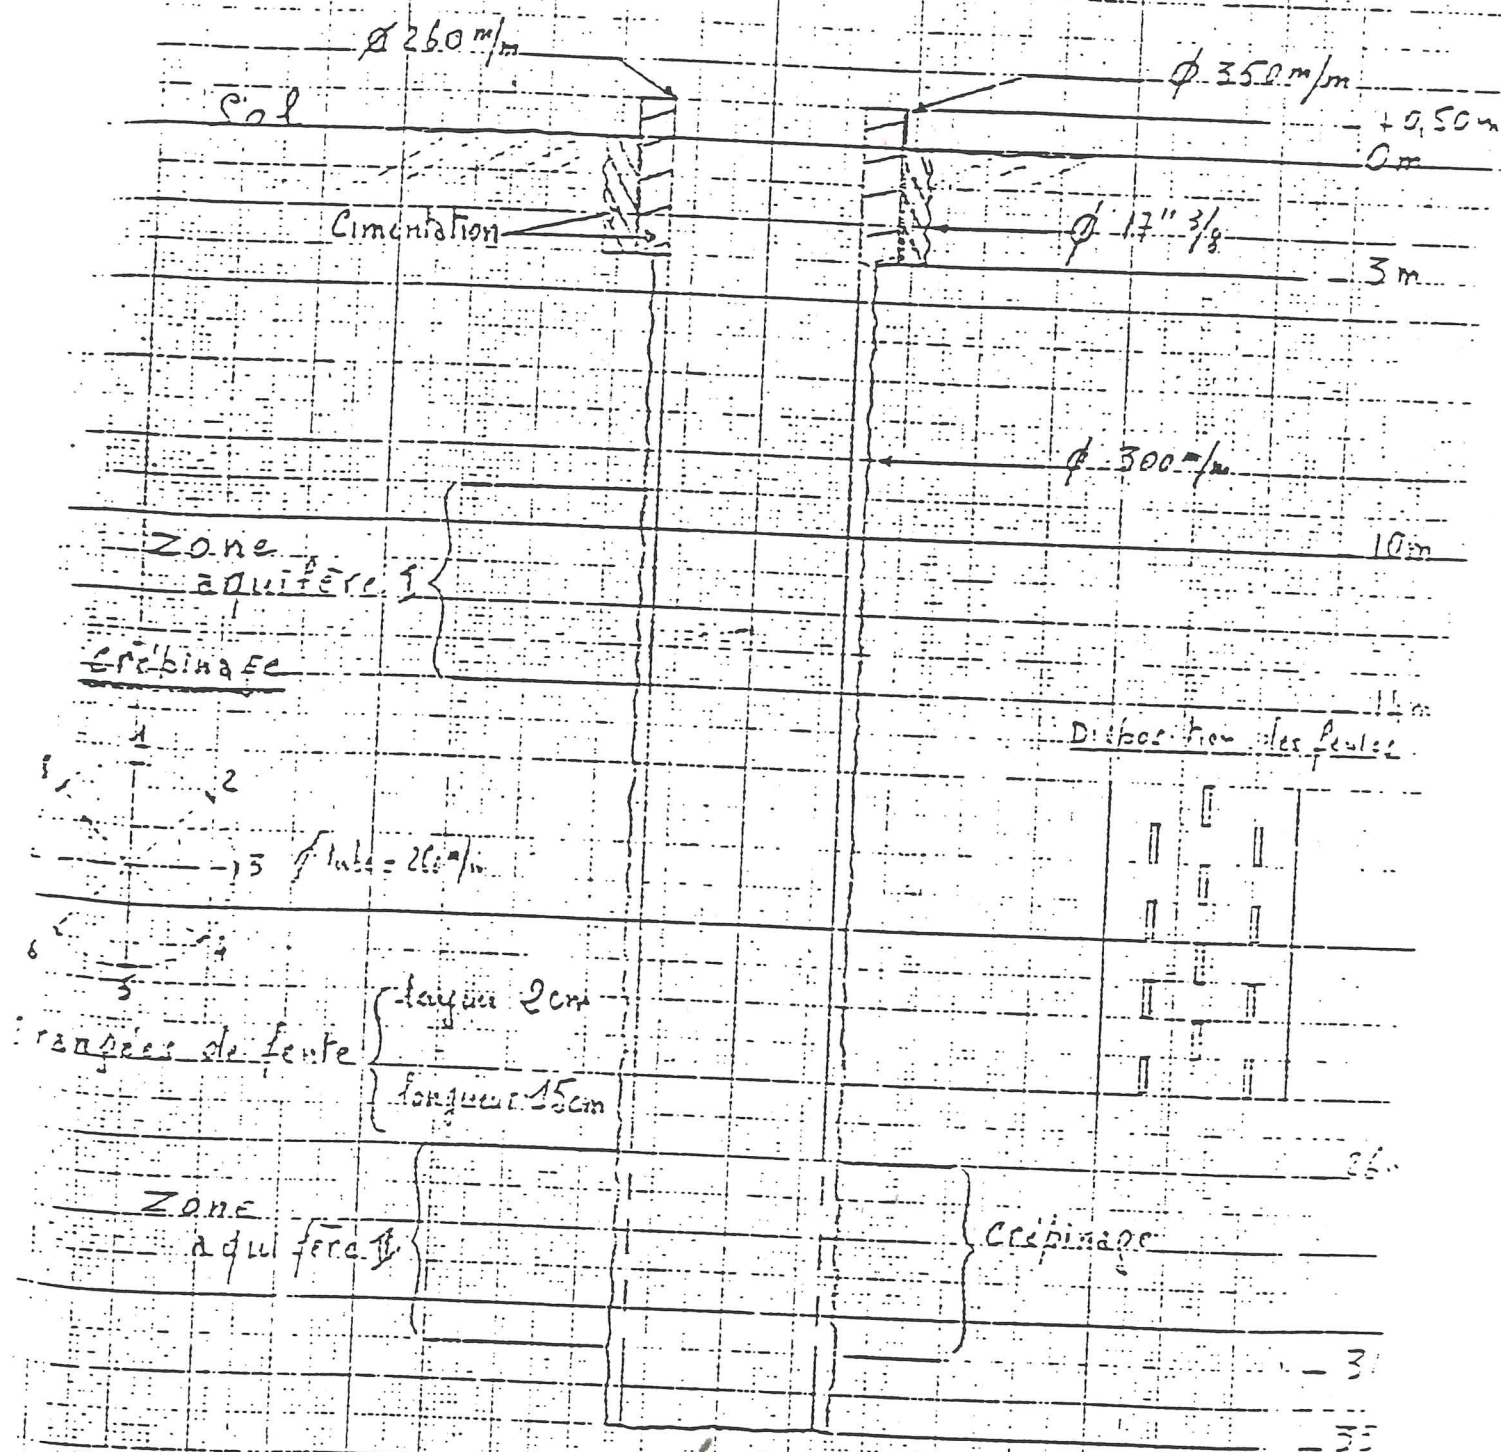 Ø 260 m/m
Ø 350 m/m
Sol
+ 0,50 m
0 m
Cimentation
Ø 17" 3/8
- 3 m
Ø 300 m/m
10 m
Zone
aquifère I
Crépinage
Disposition des fentes
1
2
3
4
5
6
Ø tube =
rangées de fente
largeur 2 cm
longueur 15 cm
Zone
aquifère II
Crépinage